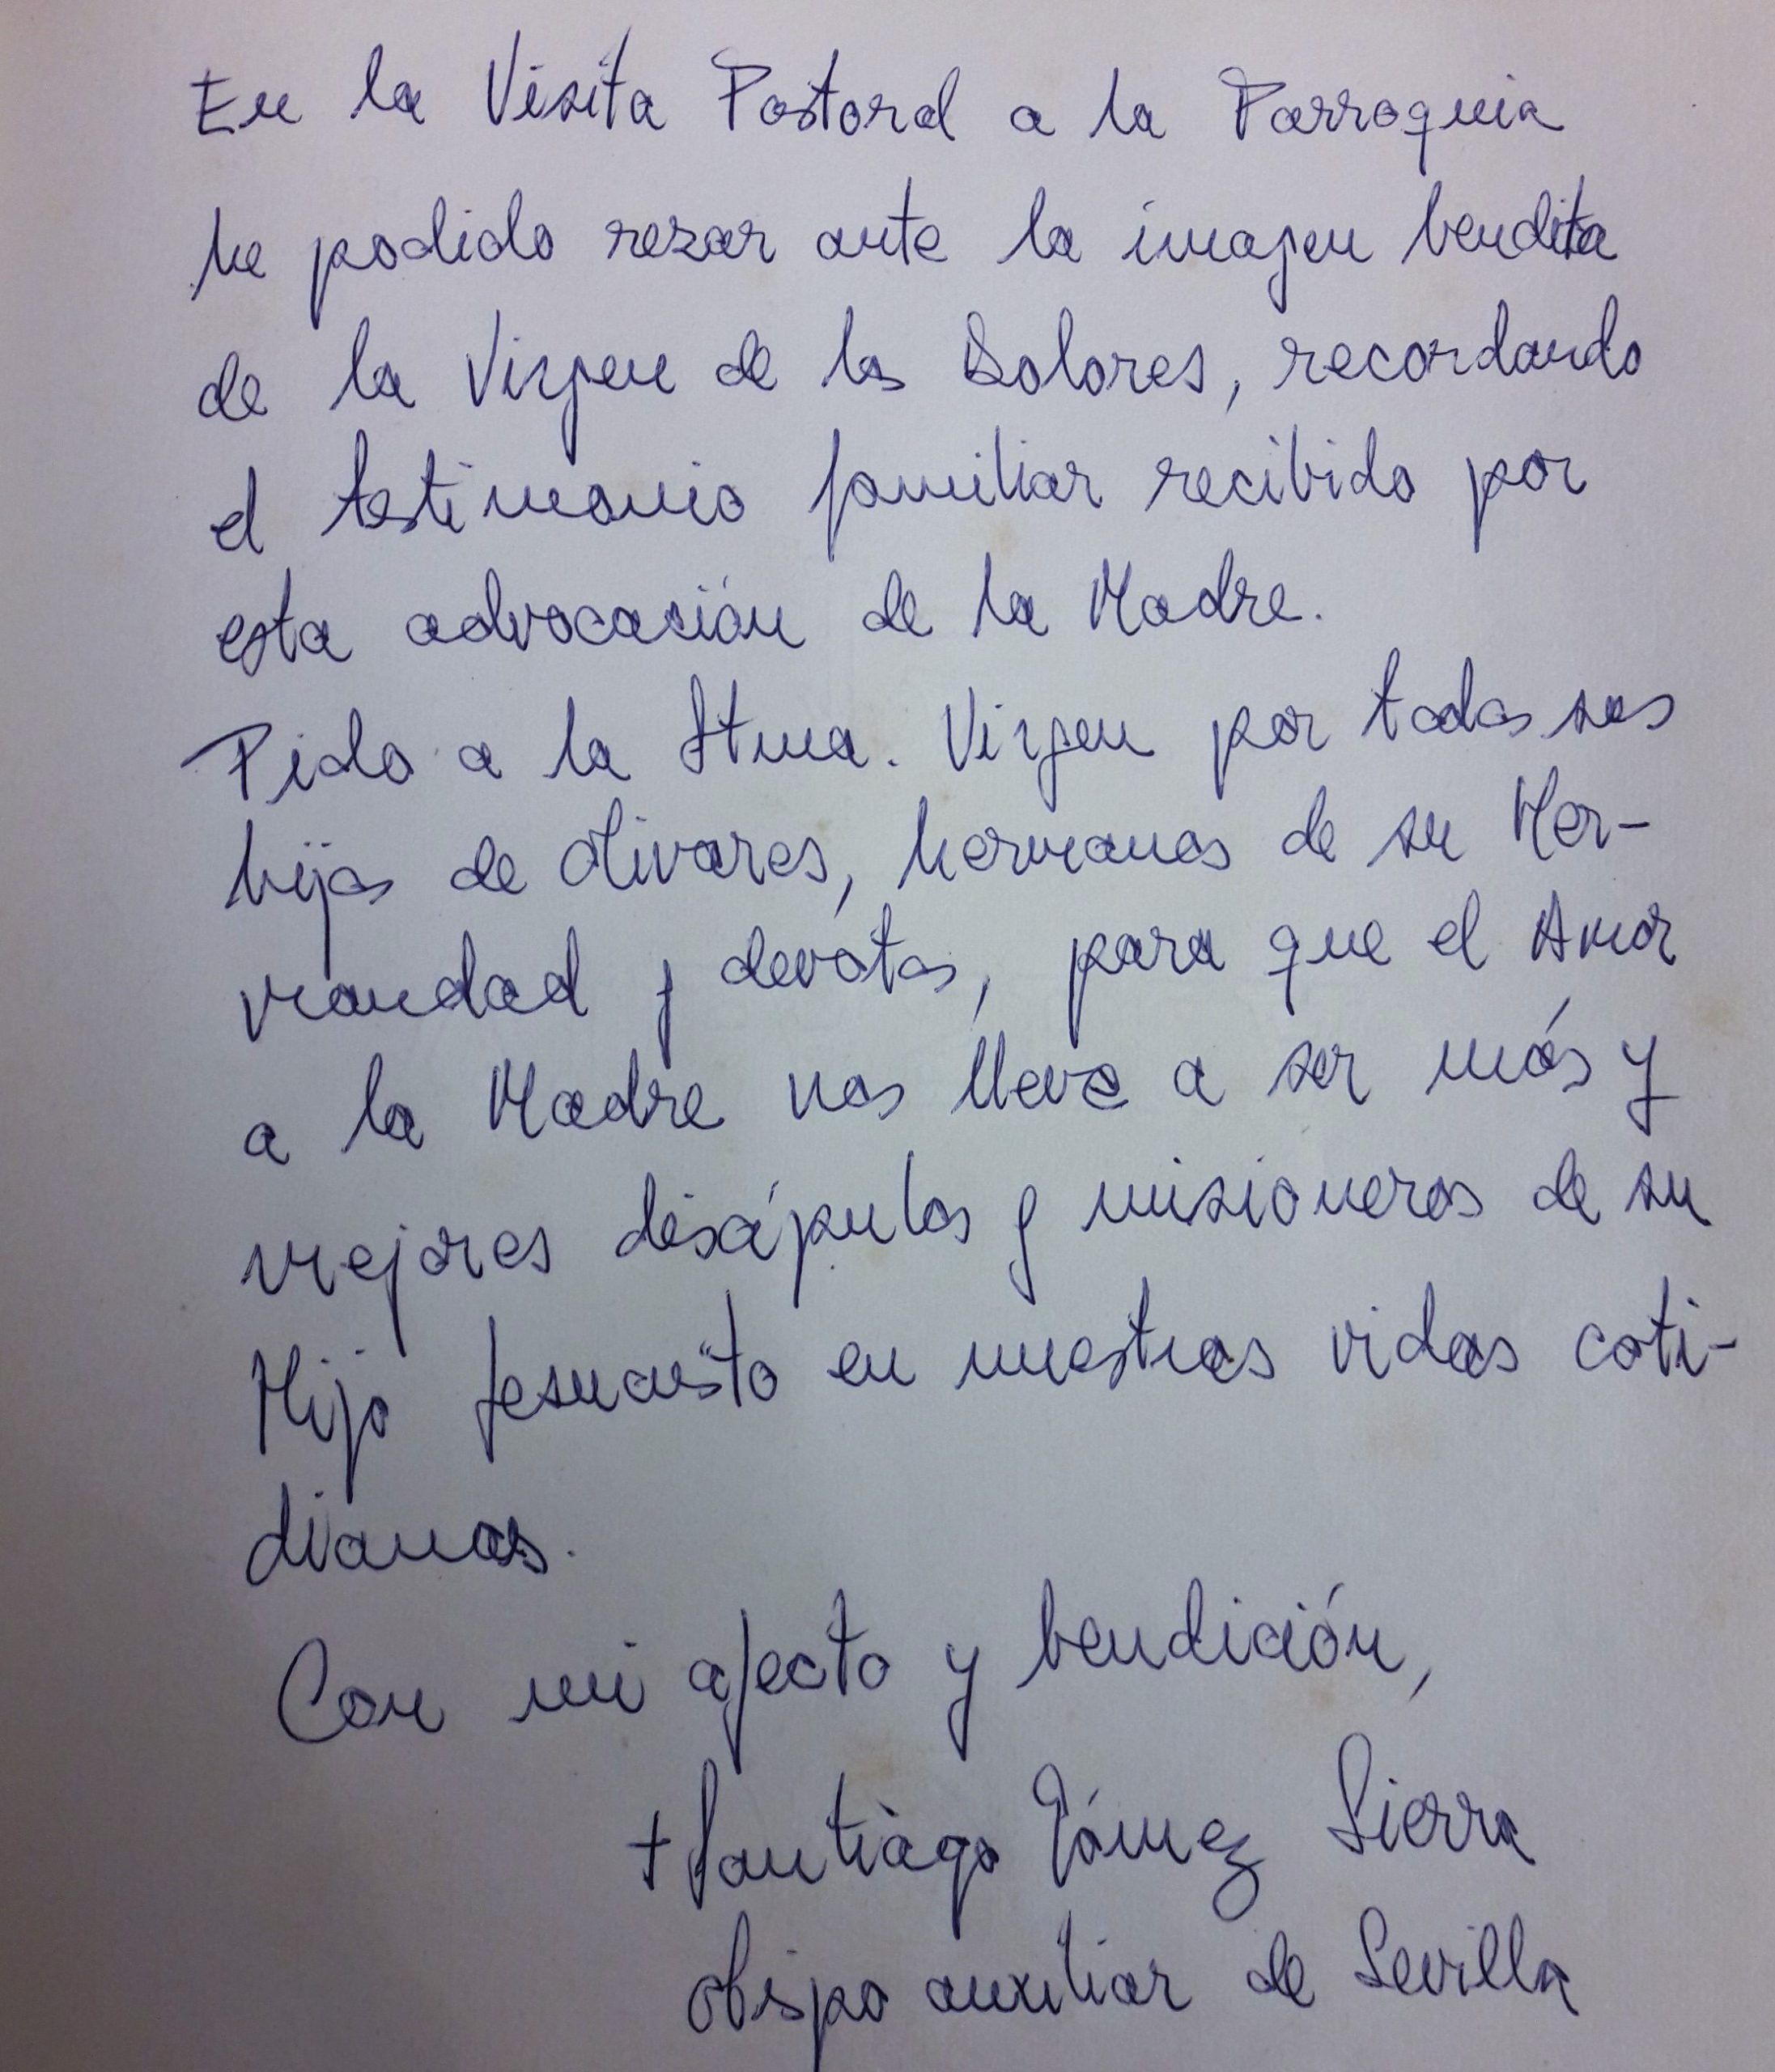 En la Visita Pastoral a la Parroquia
he podido rezar ante la imagen bendita
de la Virgen de los Dolores, recordando
el testimonio familiar recibido por
esta advocación de la Madre.
Pido a la Stma. Virgen por todos sus
hijos de Olivares, hermanos de su Her-
mandad y devotos, para que el Amor
a la Madre nos lleve a ser más y
mejores discípulos y misioneros de su
Hijo Jesucristo en nuestras vidas coti-
dianas.
Con mi afecto y bendición,
+ Santiago Gómez Sierra
Obispo auxiliar de Sevilla